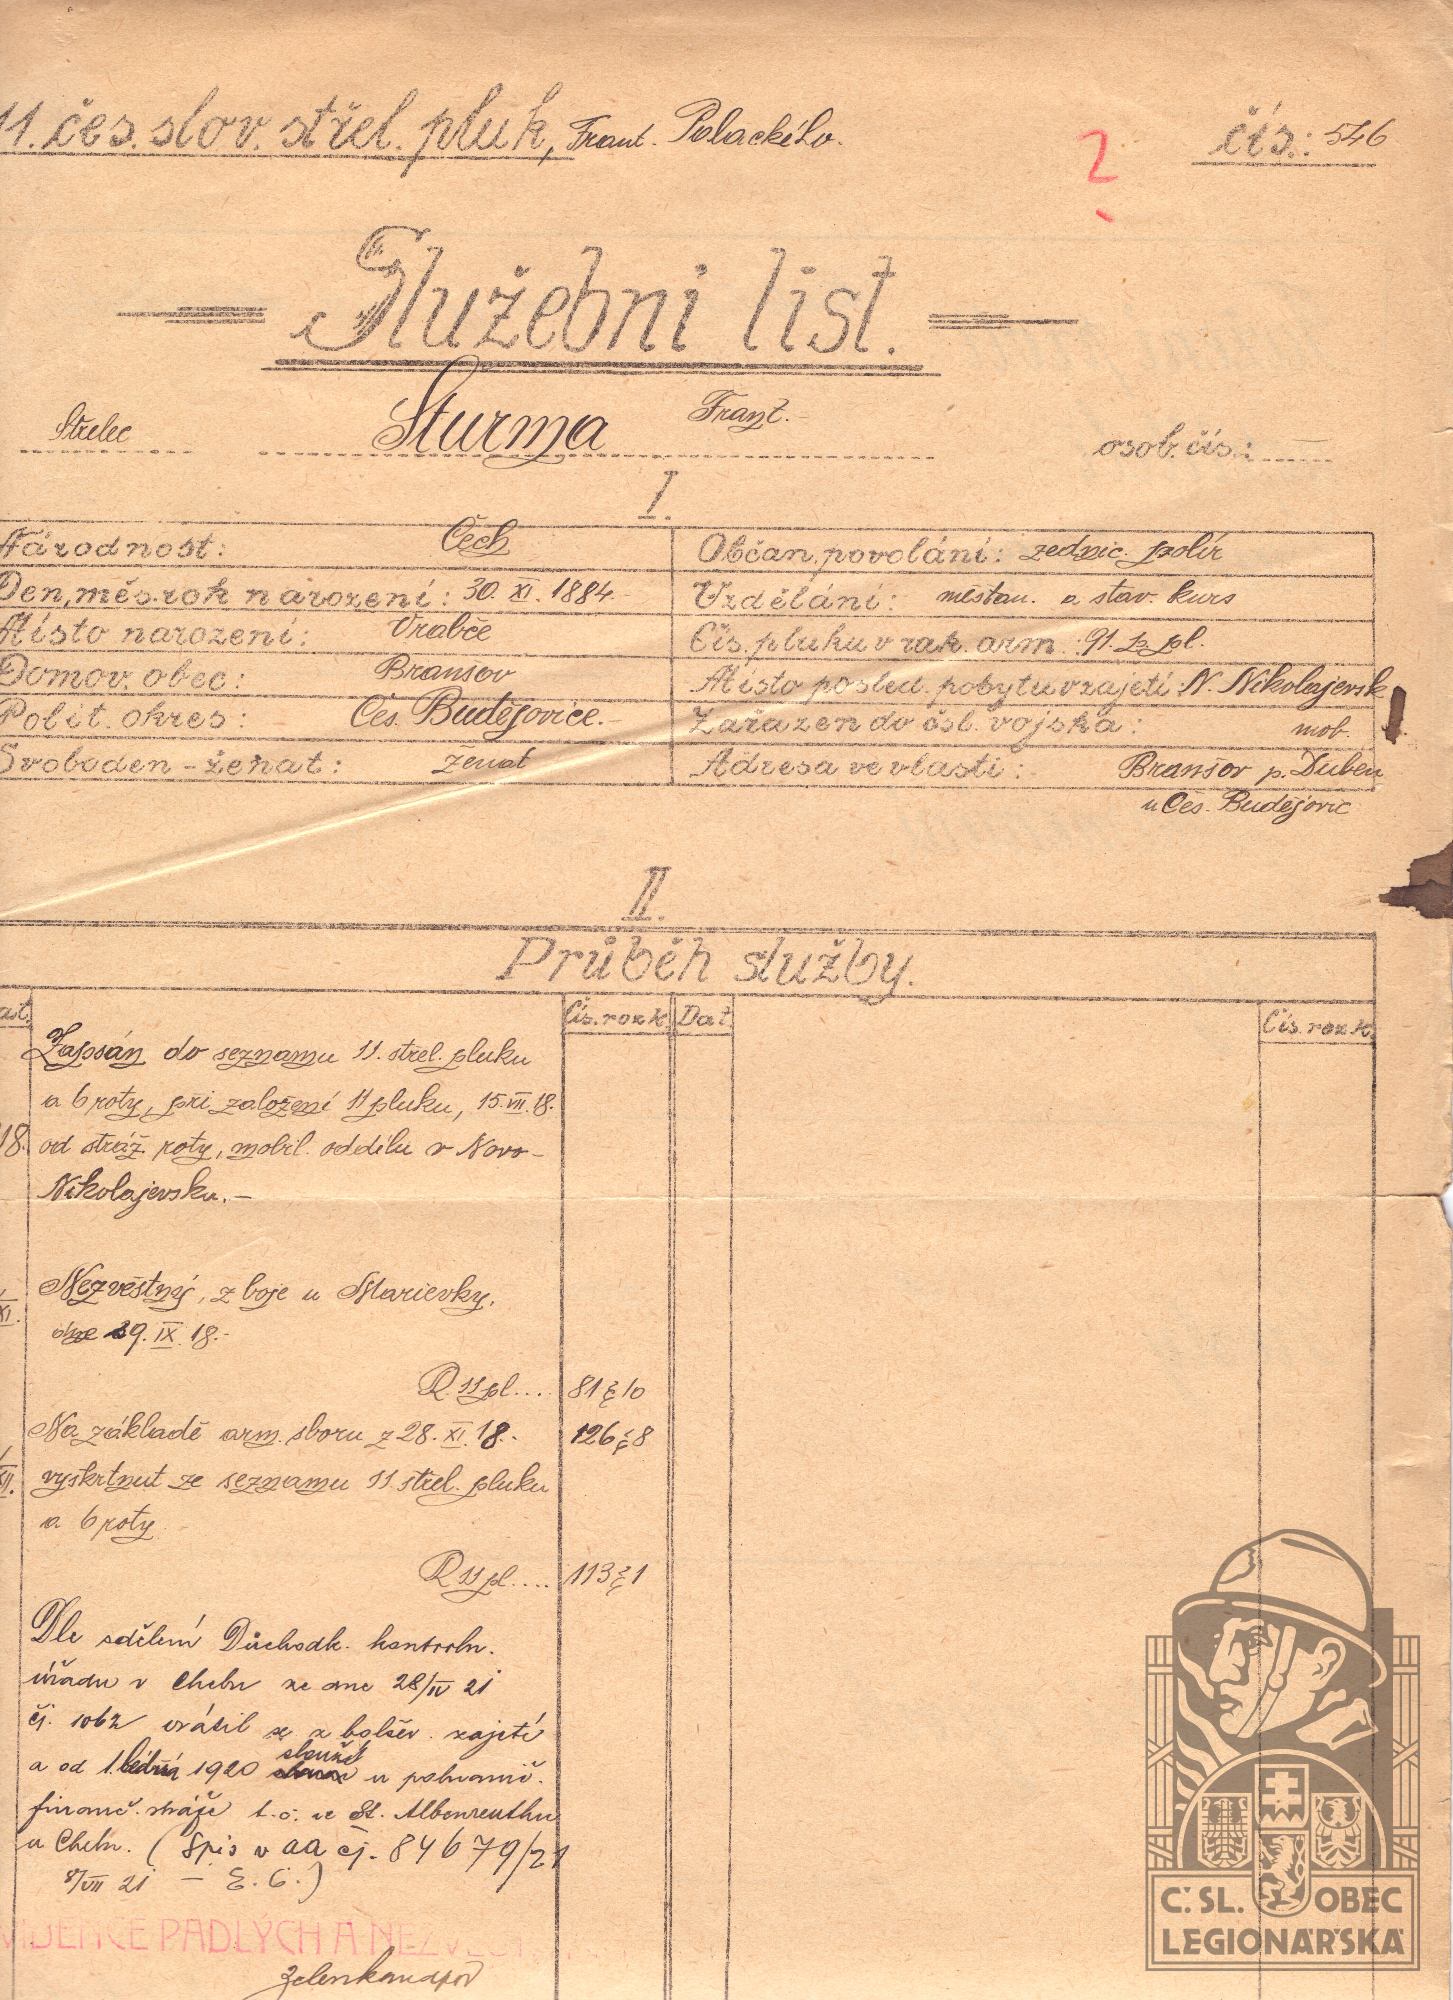 11. čes. slov. střel. pluk, Frant. Palackého. čís.: 546
?
Služebni list.
Střelec Šturma Frant. osob. čís.:
I.
Národnost: Čech
Občan. povolání: zednic. polír
Den, měs. rok narození: 30. XI. 1884.
Vzdělání: měšťan. a stav. kurs
Místo narození: Vrabče
Čís. pluku v rak. arm. 91. p. pl.
Domov. obec: Bransov
Místo posled. pobytu v zajetí: N. Nikolajevsk
Polit. okres: Čes. Budějovice.-
Zařazen do čsl. vojska: mob.
Svoboden - ženat: ženat
Adresa ve vlasti: Bransov p. Duben
u Čes. Budějovic
II.
Průběh služby.
Čís. rozk. Dat. Čís. rozk.
Zapsán do seznamu 11. střel. pluku
a 6 roty, při založení 11 pluku, 15. VII. 18.
18. od stráž. roty, mobil. oddílu v Novo-
Nikolajevsku.-
Nezvěstný, z boje u Marievky,
XI. dne 29. IX. 18.-
R. 11 pl.... 81 č 10
Na základě arm. sboru z 28. XI. 18.- 126 č 8
XII. vyškrtnut ze seznamu 11 střel. pluku
a 6 roty
R 11 pl.... 113 č 1
Dle sdělení Důchodk. kontroln.
úřadu v Chebu ze dne 28/IV 21
čj. 1062 vrátil se z bolšev. zajetí
a od 1. ledna 1920 slouží u pohranič.
financ. stráže t. č. ve St. Albenreuthu
u Chebu. (Spis v AA čj. 84679/21
8/VII 21 - E. Č.)
VIDENCE PADLÝCH A NEZVĚST
Č. SL. OBEC
LEGIONÁŘSKÁ